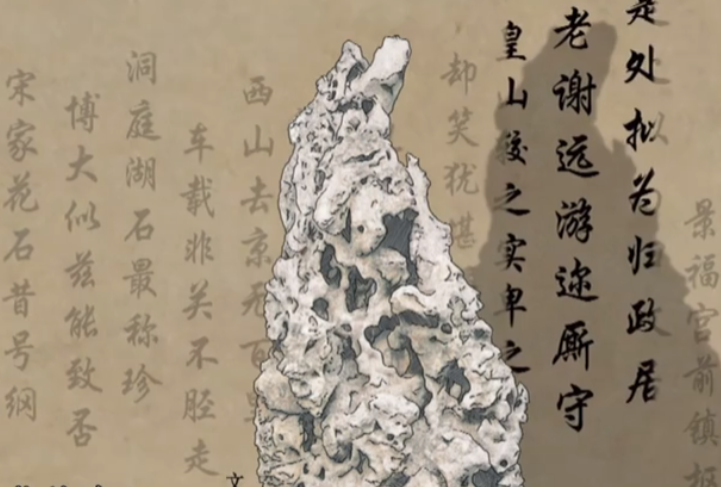 景福宫前镇抠
是处拟为归政居
老谢远游迩厮守
皇山较之实卑之
却笑犹堪
西山去京无百里
车载非关不胫走
洞庭湖石最称珍
博大似兹能致否
宋家花石昔号纲
文